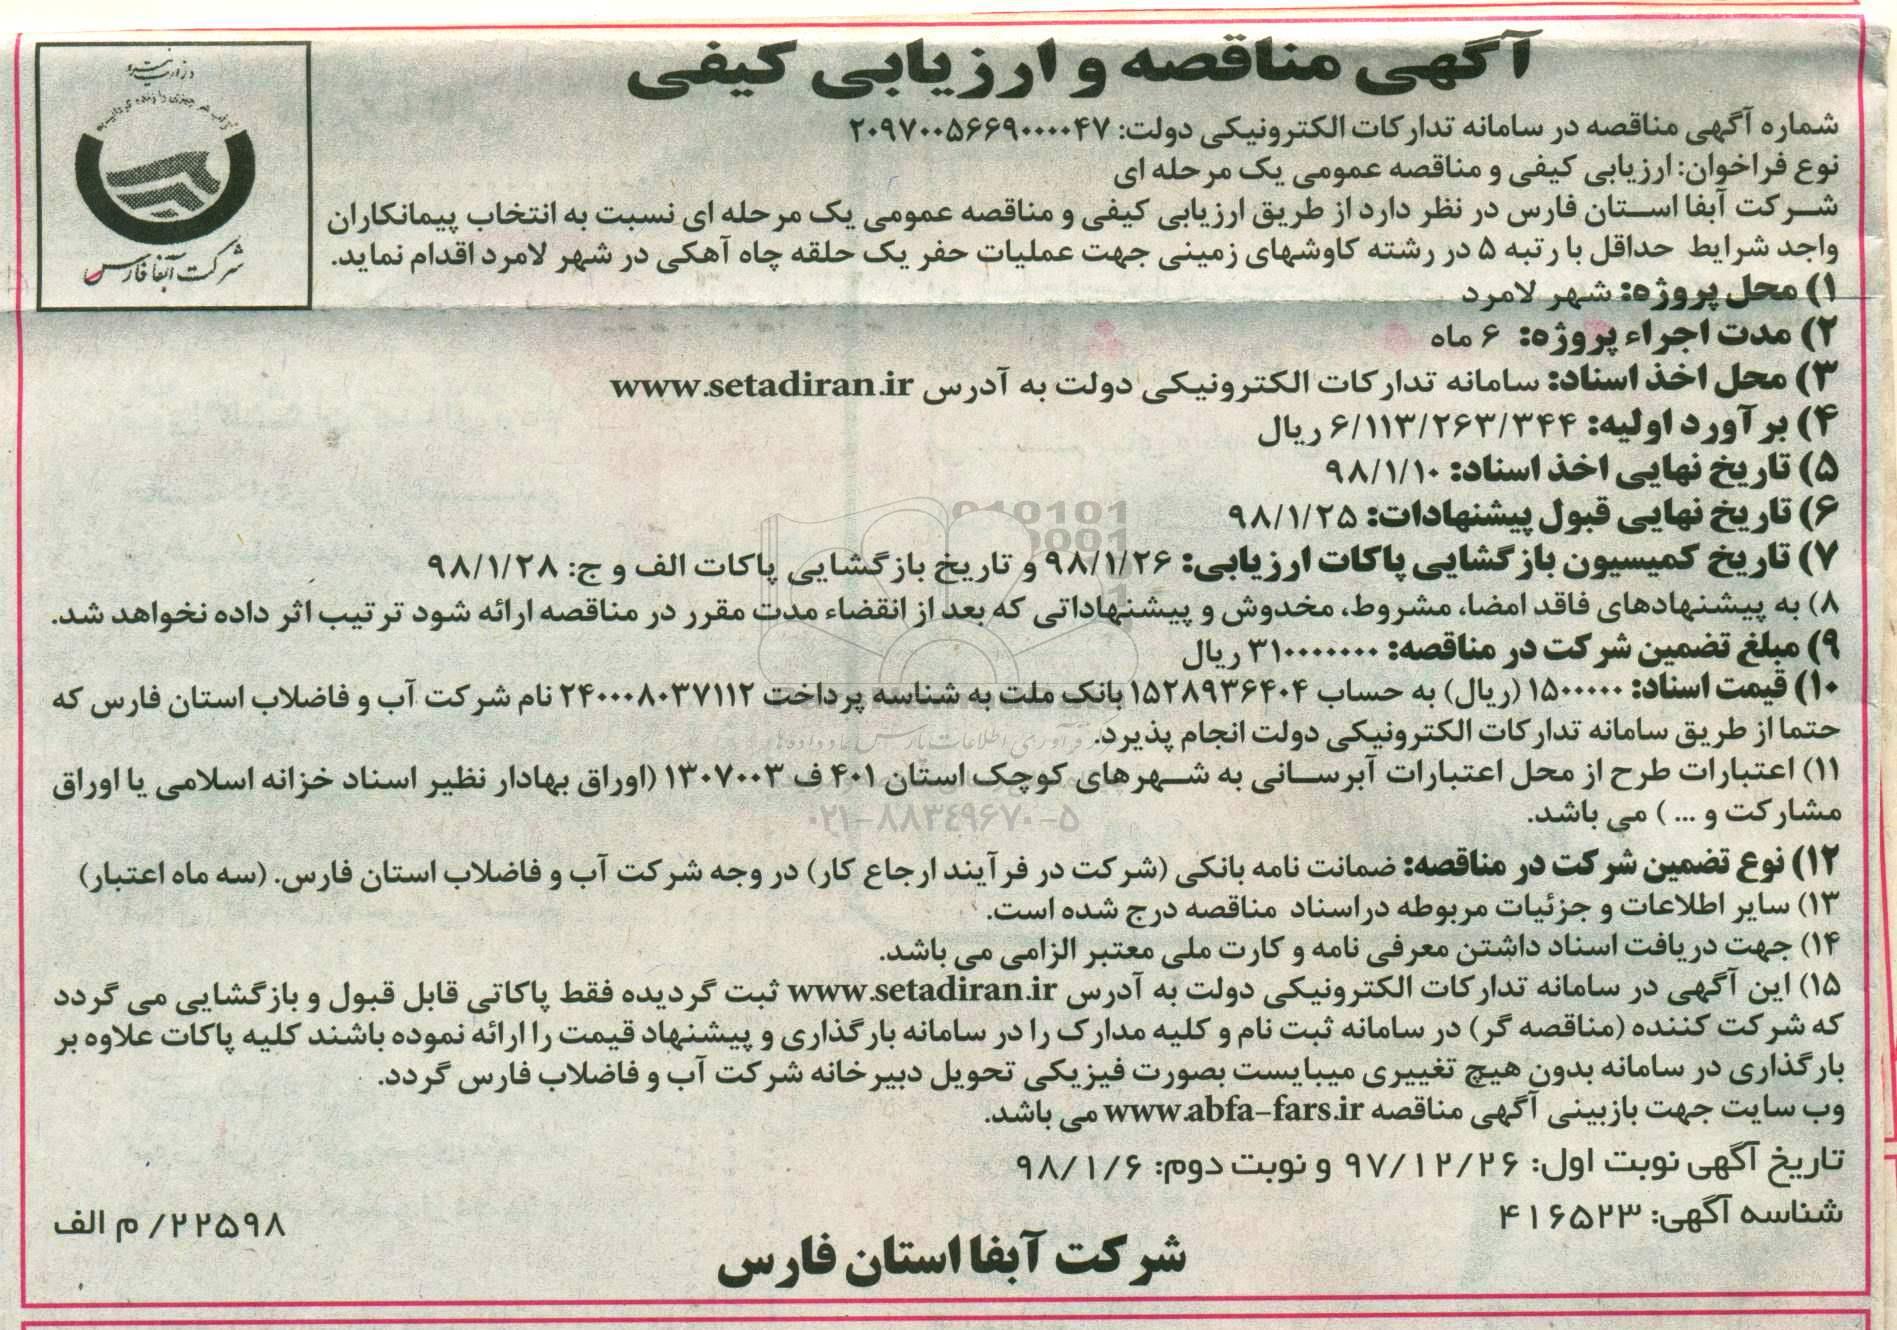 آگهی مناقصه و ارزیابی کیفی
وزارت نیرو
شرکت آبفا فارس
شماره آگهی مناقصه در سامانه تدارکات الکترونیکی دولت: ۲۰۹۷۰۰۵۶۶۹۰۰۰۰۴۷
نوع فراخوان: ارزیابی کیفی و مناقصه عمومی یک مرحله ای
شرکت آبفا استان فارس در نظر دارد از طریق ارزیابی کیفی و مناقصه عمومی یک مرحله ای نسبت به انتخاب پیمانکاران
واجد شرایط حداقل با رتبه ۵ در رشته کاوشهای زمینی جهت عملیات حفر یک حلقه چاه آهکی در شهر لامرد اقدام نماید.
۱) محل پروژه: شهر لامرد
۲) مدت اجراء پروژه: ۶ ماه
۳) محل اخذ اسناد: سامانه تدارکات الکترونیکی دولت به آدرس www.setadiran.ir
۴) بر آورد اولیه: ۶/۱۱۳/۲۶۳/۳۴۴ ریال
۵) تاریخ نهایی اخذ اسناد: ۹۸/۱/۱۰
۶) تاریخ نهایی قبول پیشنهادات: ۹۸/۱/۲۵
۷) تاریخ کمیسیون بازگشایی پاکات ارزیابی: ۹۸/۱/۲۶ و تاریخ بازگشایی پاکات الف و ج: ۹۸/۱/۲۸
۸) به پیشنهادهای فاقد امضا، مشروط، مخدوش و پیشنهاداتی که بعد از انقضاء مدت مقرر در مناقصه ارائه شود ترتیب اثر داده نخواهد شد.
۹) مبلغ تضمین شرکت در مناقصه: ۳۱۰۰۰۰۰۰۰ ریال
۱۰) قیمت اسناد: ۱۵۰۰۰۰۰ (ریال) به حساب ۱۵۲۸۹۳۶۴۰۴ بانک ملت به شناسه پرداخت ۲۴۰۰۰۸۰۳۷۱۱۲ نام شرکت آب و فاضلاب استان فارس که
حتما از طریق سامانه تدارکات الکترونیکی دولت انجام پذیرد.
۱۱) اعتبارات طرح از محل اعتبارات آبرسانی به شهرهای کوچک استان ۴۰۱ ف ۱۳۰۷۰۰۳ (اوراق بهادار نظیر اسناد خزانه اسلامی یا اوراق
مشارکت و ... ) می باشد.
۰۲۱-۸۸۳۴۹۶۷۰-۵
۱۲) نوع تضمین شرکت در مناقصه: ضمانت نامه بانکی (شرکت در فرآیند ارجاع کار) در وجه شرکت آب و فاضلاب استان فارس. (سه ماه اعتبار)
۱۳) سایر اطلاعات و جزئیات مربوطه دراسناد مناقصه درج شده است.
۱۴) جهت دریافت اسناد داشتن معرفی نامه و کارت ملی معتبر الزامی می باشد.
۱۵) این آگهی در سامانه تدارکات الکترونیکی دولت به آدرس www.setadiran.ir ثبت گردیده فقط پاکاتی قابل قبول و بازگشایی می گردد
که شرکت کننده (مناقصه گر) در سامانه ثبت نام و کلیه مدارک را در سامانه بارگذاری و پیشنهاد قیمت را ارائه نموده باشند کلیه پاکات علاوه بر
بارگذاری در سامانه بدون هیچ تغییری میبایست بصورت فیزیکی تحویل دبیرخانه شرکت آب و فاضلاب فارس گردد.
وب سایت جهت بازبینی آگهی مناقصه www.abfa-fars.ir می باشد.
تاریخ آگهی نوبت اول: ۹۷/۱۲/۲۶ و نوبت دوم: ۹۸/۱/۶
شناسه آگهی: ۴۱۶۵۲۳
۲۲۵۹۸/ م الف
شرکت آبفا استان فارس